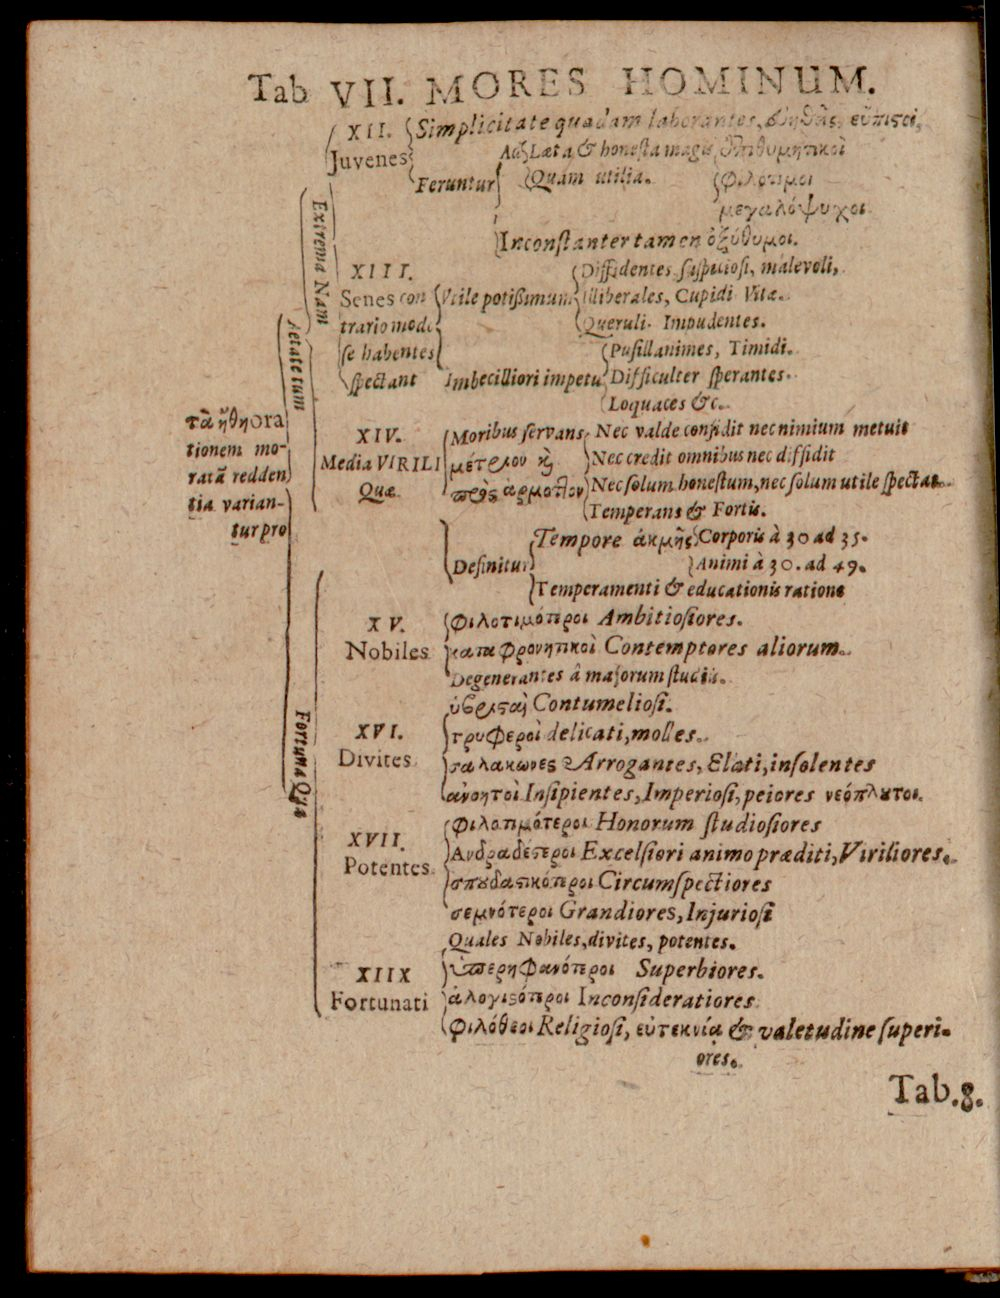 Tab VII. MORES HOMINUM.
XII. Simplicitate quadam laborantes, εὐήθεις, εὔπιστοι,
Juvenes Ad Læta, & honesta magis ἐπιθυμητικοὶ
Feruntur Quàm utilia. φιλότιμοι
μεγαλόψυχοι
Inconstanter tamen ὀξύθυμοι.
Extrema Nam
XIII. Diffidentes suspiciosi, malevoli,
Senes con Utile potißimum illiberales, Cupidi Vitæ.
trario modo Queruli. Impudentes.
se habentes Pusillanimes, Timidi.
spectant Imbecilliori impetu Difficulter sperantes.
Loquaces &c.
Aetate tum
τὰ ἤθη ora
tionem mo-
ratã redden
tia varian-
tur pro
XIV. Moribus servans Nec valde confidit nec nimium metuit
Media VIRILI μέτριον καὶ Nec credit omnibus nec diffidit
Quæ πρὸς ἁρμοττον Nec solum honestum, nec solum utile spectat.
Temperans & Fortis.
Tempore ἀκμῆς Corporis à 30 ad 35.
Definitur Animi à 30. ad 49.
Temperamenti & educationis ratione
Fortuna Quæ
XV. φιλοτιμότεροι Ambitiosiores.
Nobiles καταφρονητικοὶ Contemptores aliorum.
Degenerantes à majorum studiis.
ὑβρισταὶ Contumeliosi.
XVI. τρυφεροὶ delicati, molles.
Divites σαλακωνες Arrogantes, Elati, insolentes
ανοητοὶ Insipientes, Imperiosi, peiores νεόπλȣτοι.
φιλοτιμότεροι Honorum studiosiores
XVII. Ανδρωδέστεροι Excelsiori animo præditi, Viriliores.
Potentes. σπȣδαστικότεροι Circumspectiores
σεμνότεροι Grandiores, Injuriosi
Quales Nobiles, divites, potentes.
XIIX ὑπερηφανότεροι Superbiores.
Fortunati ἀλογιστότεροι Inconsideratiores
φιλόθεοι Religiosi, εὐτεκνίᾳ & valetudine superi-
ores.
Tab. 8.